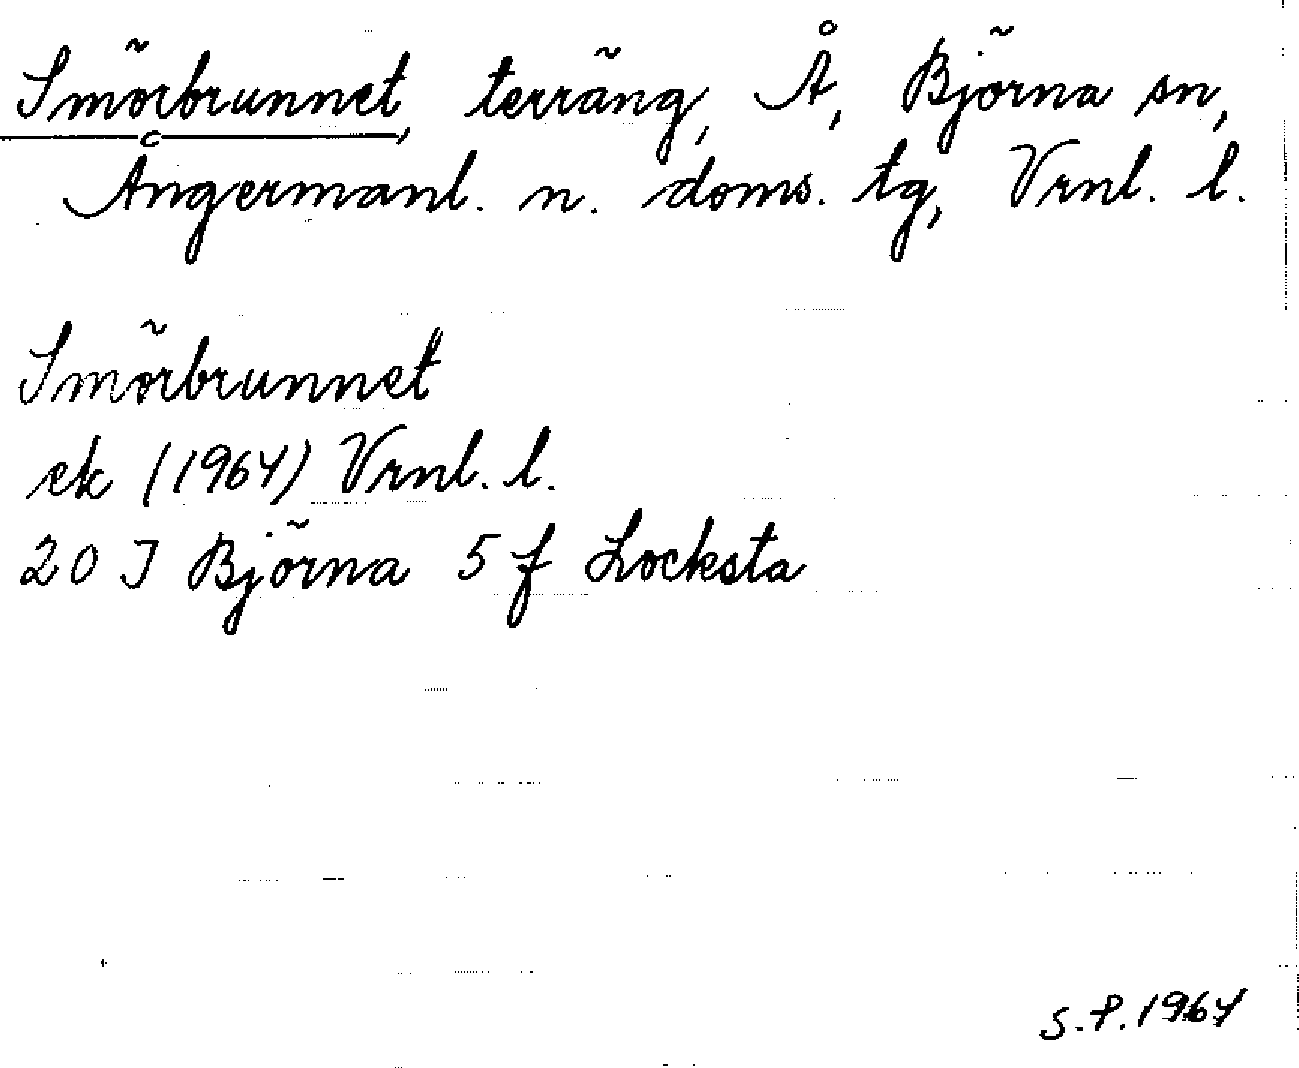 Smörbrunnet, terräng, Å, Björna sn,
Ångermanl. n. doms. tg, Vrnl. l.
Smörbrunnet
ek (1964) Vrnl. l.
20 J Björna 5 f Locksta
S.P. 1964